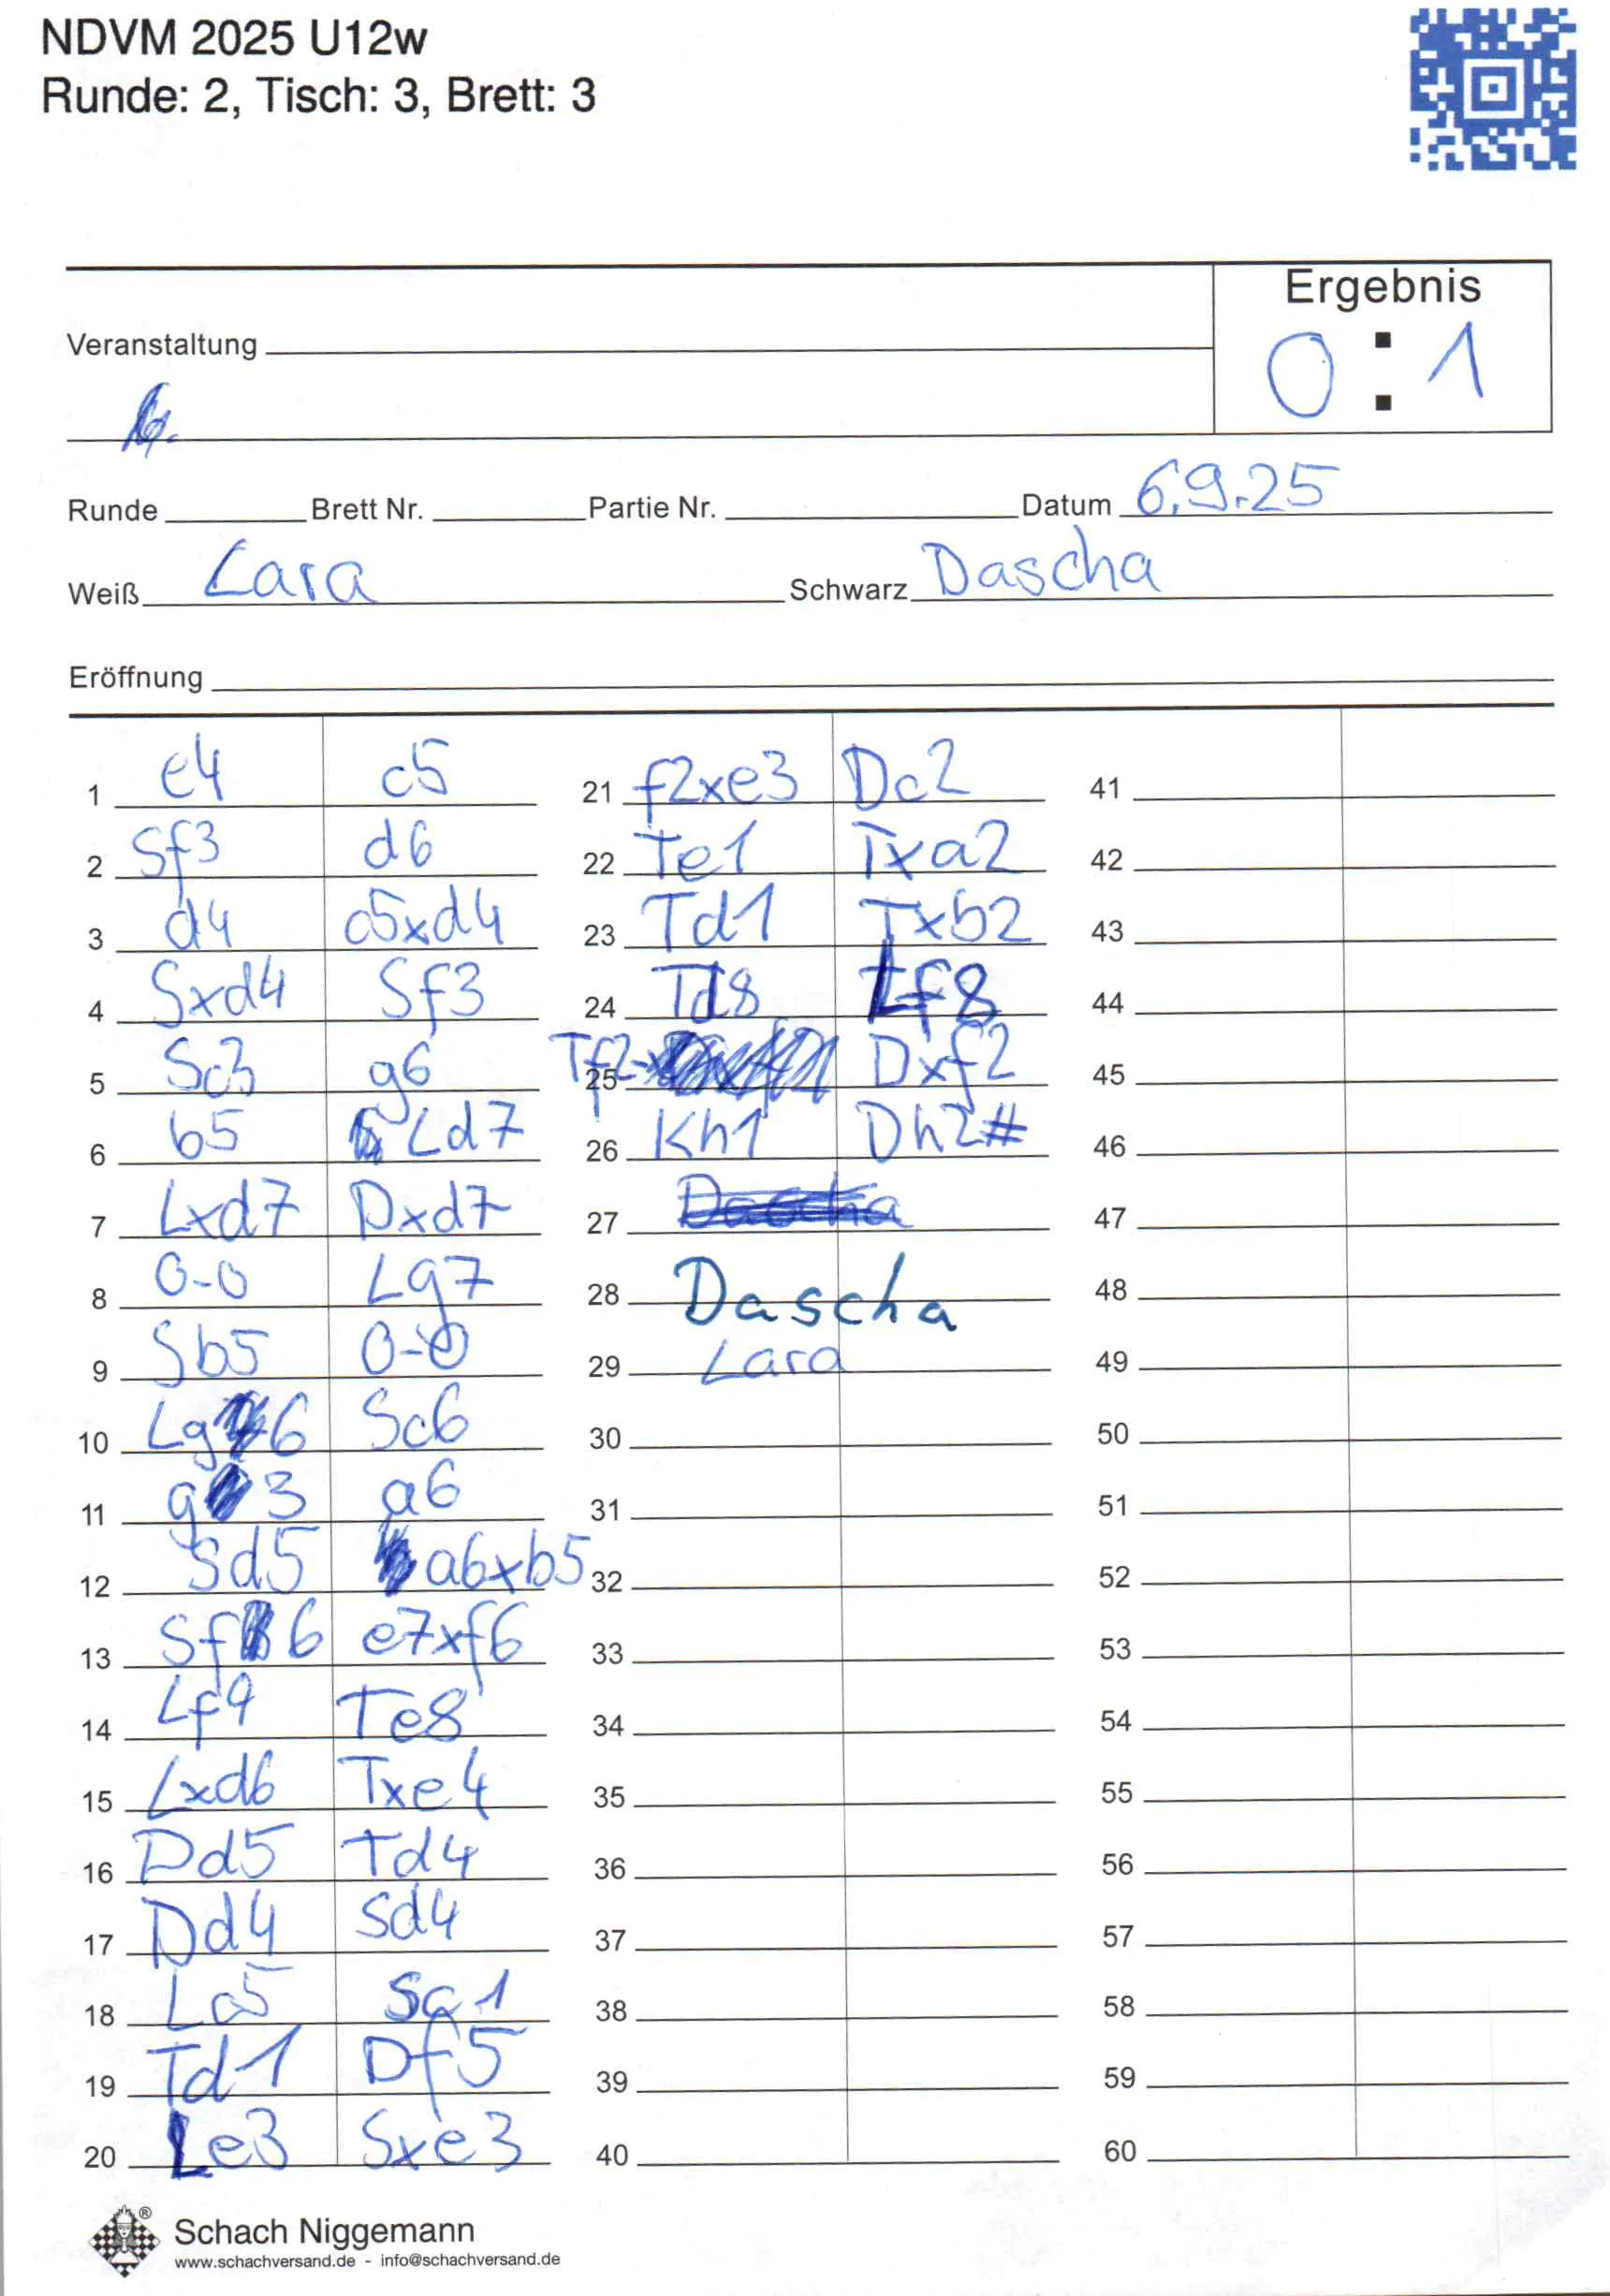 NDVM 2025 U12w
Runde: 2, Tisch: 3, Brett: 3
Ergebnis
0 : 1
Veranstaltung
Runde Brett Nr. Partie Nr. Datum 6.9.25
Weiß Lara Schwarz Dascha
Eröffnung
1 e4 c5
2 Sf3 d6
3 d4 c5xd4
4 Sxd4 Sf3
5 Sc3 g6
6 b5 Ld7
7 Lxd7 Dxd7
8 0-0 Lg7
9 Sb5 0-0
10 Lg6 Sc6
11 g3 a6
12 Sd5 a6xb5
13 Sf6 e7xf6
14 Lf4 Te8
15 Lxd6 Txe4
16 Dd5 Td4
17 Dd4 Sd4
18 Lc5
19 Td1 Df5
20 Le3 Sxe3
21 f2xe3 Dc2
22 Te1 Txa2
23 Td1 Txb2
24 Td8 Lf8
25 Tf2 Dxf2
26 Kh1 Dh2#
27 Dascha
28 Dascha
29 Lara
30
31
32
33
34
35
36
37
38
39
40
41
42
43
44
45
46
47
48
49
50
51
52
53
54
55
56
57
58
59
60
®
Schach Niggemann
www.schachversand.de - info@schachversand.de